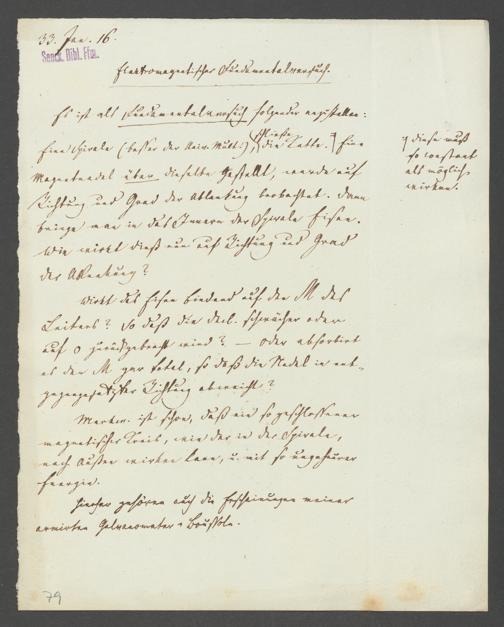 33. Jan. 16.
Senck. Bibl. Ffm.
Electromagnetischer Fundamentalversuch.
Es ist als Fundamentalversuch folgender anzustellen:
Eine Spirale (besser der Schw. Mult.) schließe die Kette. *) Eine
Magnetnadel über dieselbe gestellt, werde auf
Richtung und Grad der Ablenkung beobachtet. Dann
bringe man in das Innere der Spirale Eisen.
Wie wirkt dieß nun auf Richtung und Grad
der Ablenkung?
Wirkt das Eisen bindend auf den M des
Leiters? so daß die decl. schwächer oder
auf 0 zurückgebracht wird? — oder absorbirt
es den M gar total, so daß die Nadel in ent-
gegengesetzter Richtung abweicht?
Merkw. ist schon, daß ein so geschlossener
magnetischer Kreis, wie der in der Spirale,
nach Außen wirken kann, u. mit so ungeheurer
Energie.
Hierher gehören auch die Erscheinungen meiner
armirten Galvanometer - Boussole.
*) diese muß
so constant
als möglich
wirken.
79